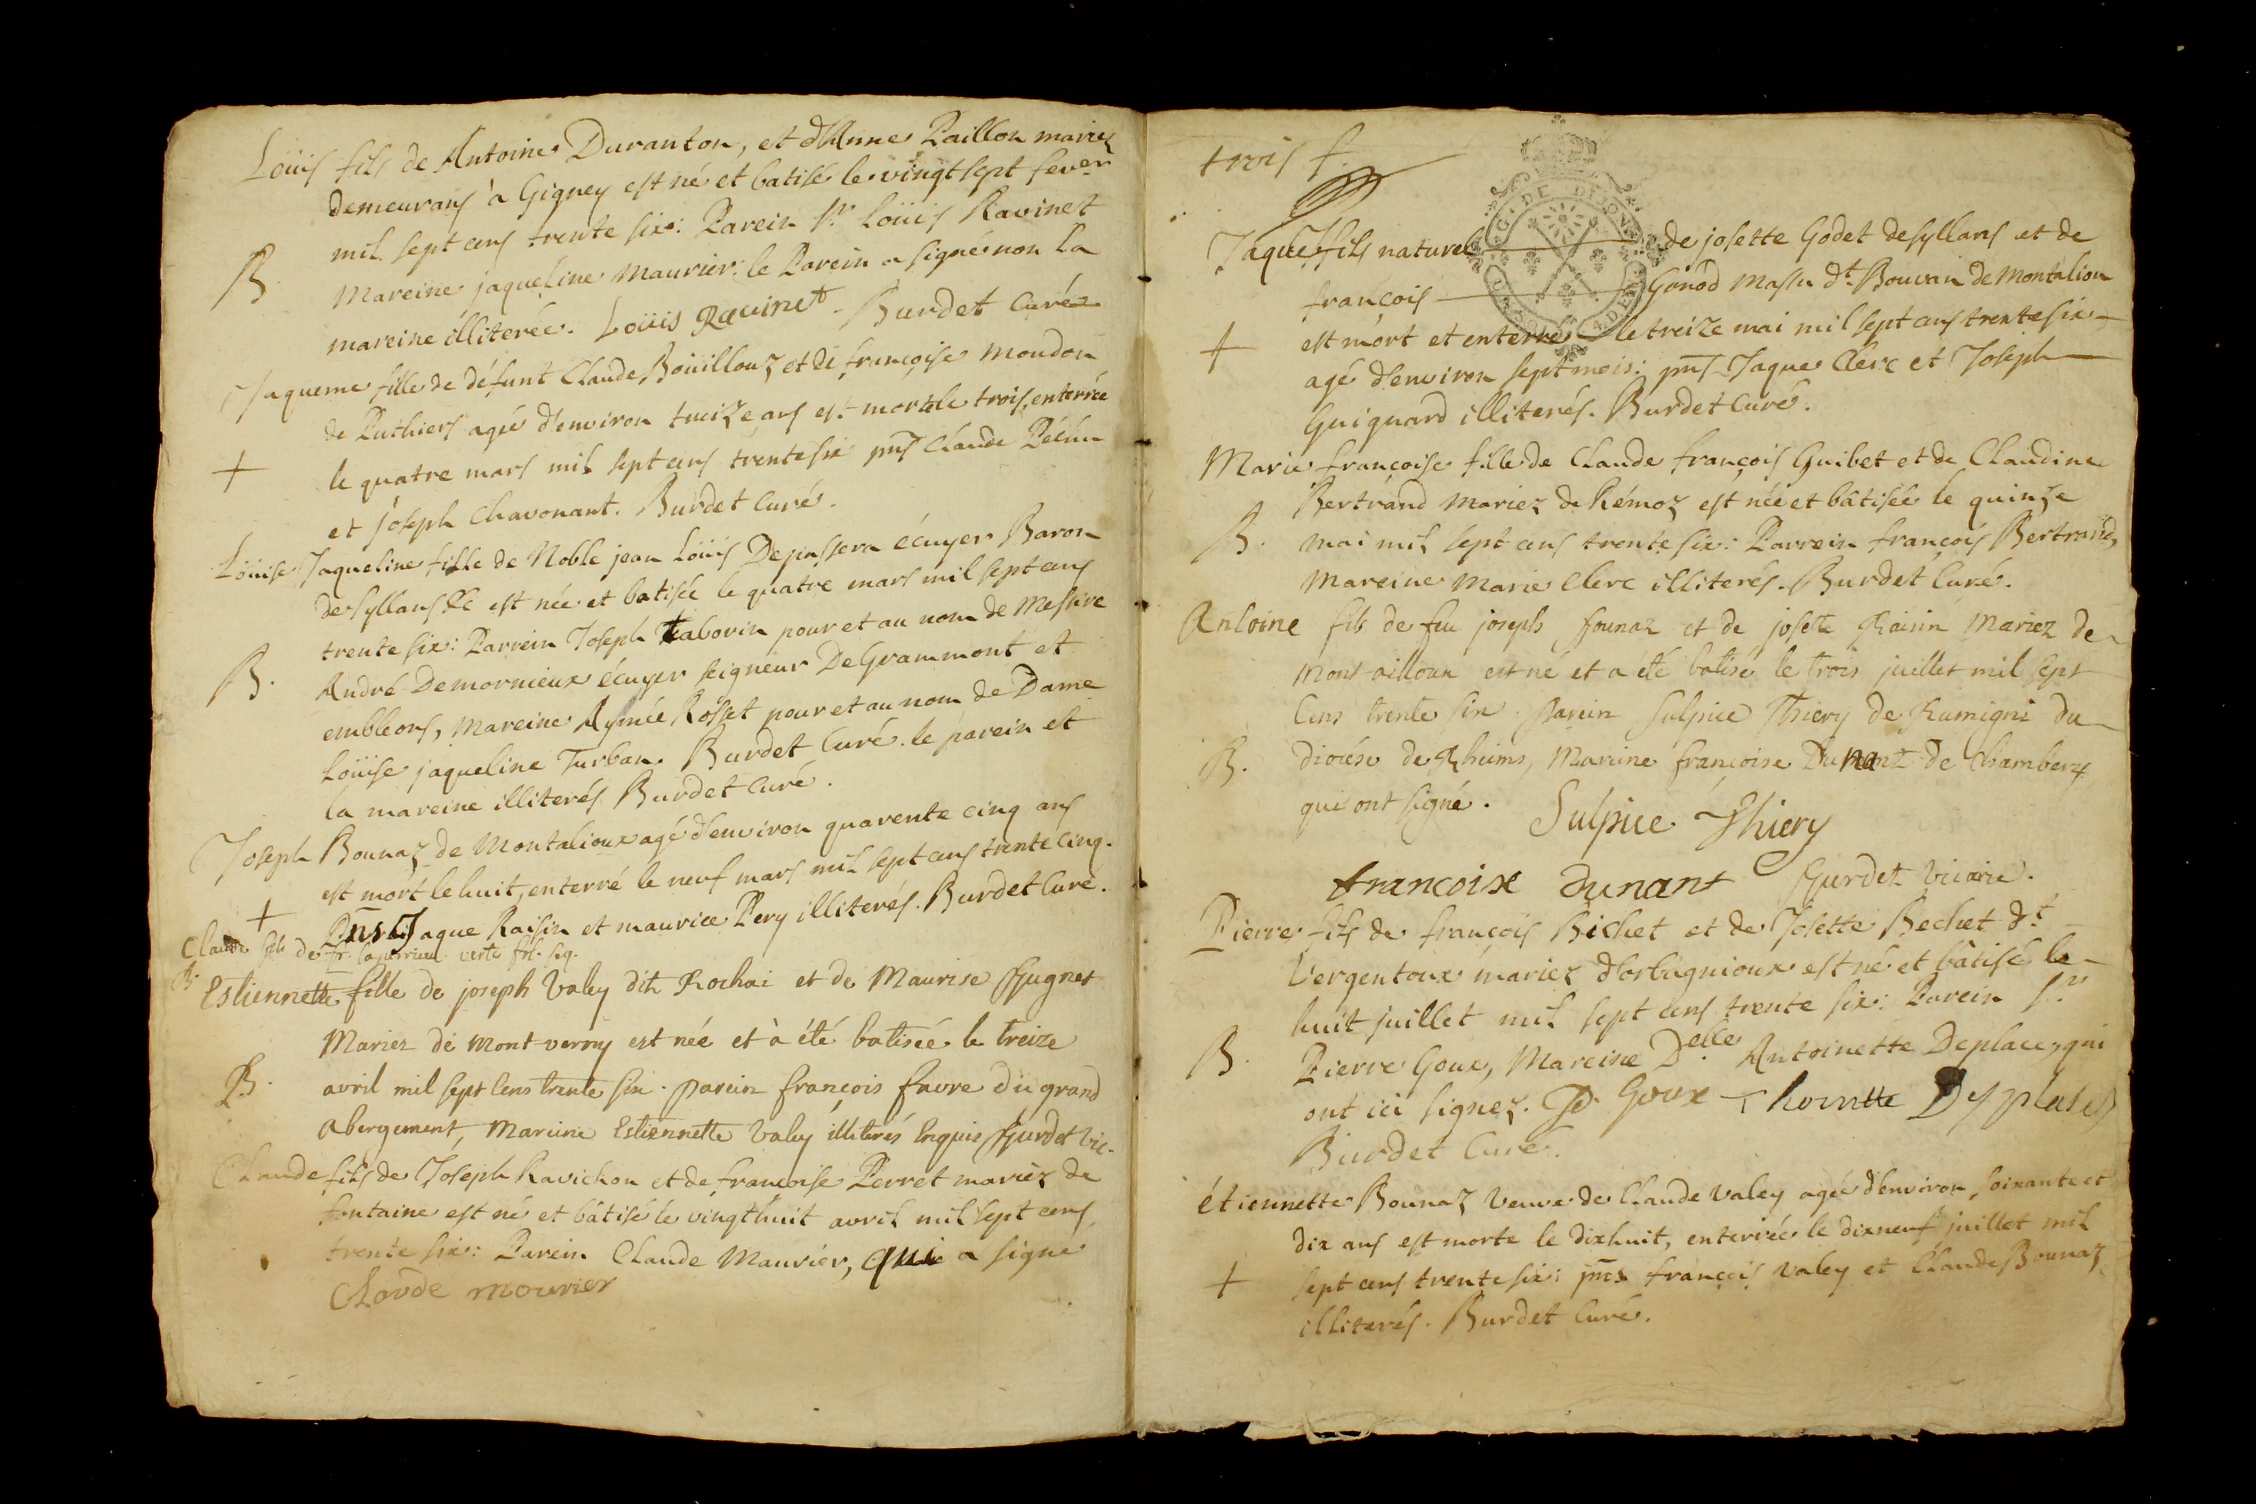 Loüis fils de Antoine Duranton, et d'Anne Paillon mariez
demeurans à Gigney est né et batisé le vingt sept fevr
mil sept cens trente six: Parein Sr. Loüis Ravinet
B
Mareine jaqueline Maurier: le Parein a signé non la
mareine illiterée. Loüis Ravinet. Burdet Curé
Jaqueme fille de défunt Claude Boüillouz et de françoise Moudon
de Puthiers agée d'environ treize ans est morte le trois, enterrée
+
le quatre mars mil sept cens trente six pns Claude
et joseph Chavonant. Burdet Curé.
Loüise Jaqueline fille de Noble jean Loüis Depassera écuyer Baron
de Syllans &c est née et batisée le quatre mars mil sept cens
trente six: Parrein Joseph Taborin pour et au nom de Messire
B.
André Demornieux écuyer seigneur De Grammont et
embleons, Mareine Aymée Rosset pour et au nom de Dame
Loüise jaqueline Turban. Burdet Curé. le parein et
la mareine illiterés. Burdet Curé.
Joseph Bounaz de Montalioux agé d'environ quarente cinq ans
est mort le huit, enterré le neuf mars mil sept cens trente cinq.
+
Pns Jaque Raisin et maurice Pery illiterés. Burdet Curé.
Claude fils de fr. verte fol. seq.
B.
Estiennette fille de joseph Valey dit Rochai et de Maurise Hugnet
Mariez de Mont verny est née et à été batisée le treize
B.
avril mil sept cens trente six. parein françois favre du grand
Abergement, Mareine Estiennette Valey illiterés Enquis Gurdet vic.
Claude fils de Joseph Ravichon et de françoise Perret mariez de
fontaine est né et bâtisé le vingthuit avril mil sept cens
trente six: Parein Claude Maurier, qui a signé
Clavde mourier
trois f.
G. DE DIJON
Jaque fils naturel de josette Godet de syllans et de
françois Gonod Massu dt. Bouvan de Montaliou
+
est mort et enterré le treize mai mil sept cens trente six
agé d'environ sept mois: pns Jaque Clerc et Joseph
Guignard illiterés. Burdet Curé.
Marie françoise fille de Claude françois Guibet et de Claudine
Bertrand mariez de Rémoz est née et bâtisée le quinze
B.
mai mil sept cens trente six: Parrein françois Bertrand,
Mareine Marie Clerc illiterés. Burdet Curé.
Antoine fils de feu joseph founaz et de josete Raisin Mariez de
Mont ailloux est né et a été batisé le trois juillet mil sept
Cens trente six. Parein Sulpice Thiery de Rumigni du
B.
diocése de Rheims, Mareine francoise Dunant de Chambery
qui ont signé. Sulpice Thiery
francoise dunant Gurdet vicaire.
Pierre fils de françois Bichet et de Josette Bechet dt.
Vergentoux mariez d'orbagnioux est né et bâtisé le
huit juillet mil sept cens trente six: Parein Sr.
B.
Pierre Goux, Mareine Delle Antoinette Deplace, qui
ont ici signez. P. Goux Thoinette Desplases
Burdet Curé.
étiennette Bounaz Veuve de Claude Valey agée d'environ soixante et
dix ans est morte le dixhuit, enterrée le dixneuf juillet mil
+
sept cens trente six: pns françois Valey et Claude Bounaz
illiterés. Burdet Curé.